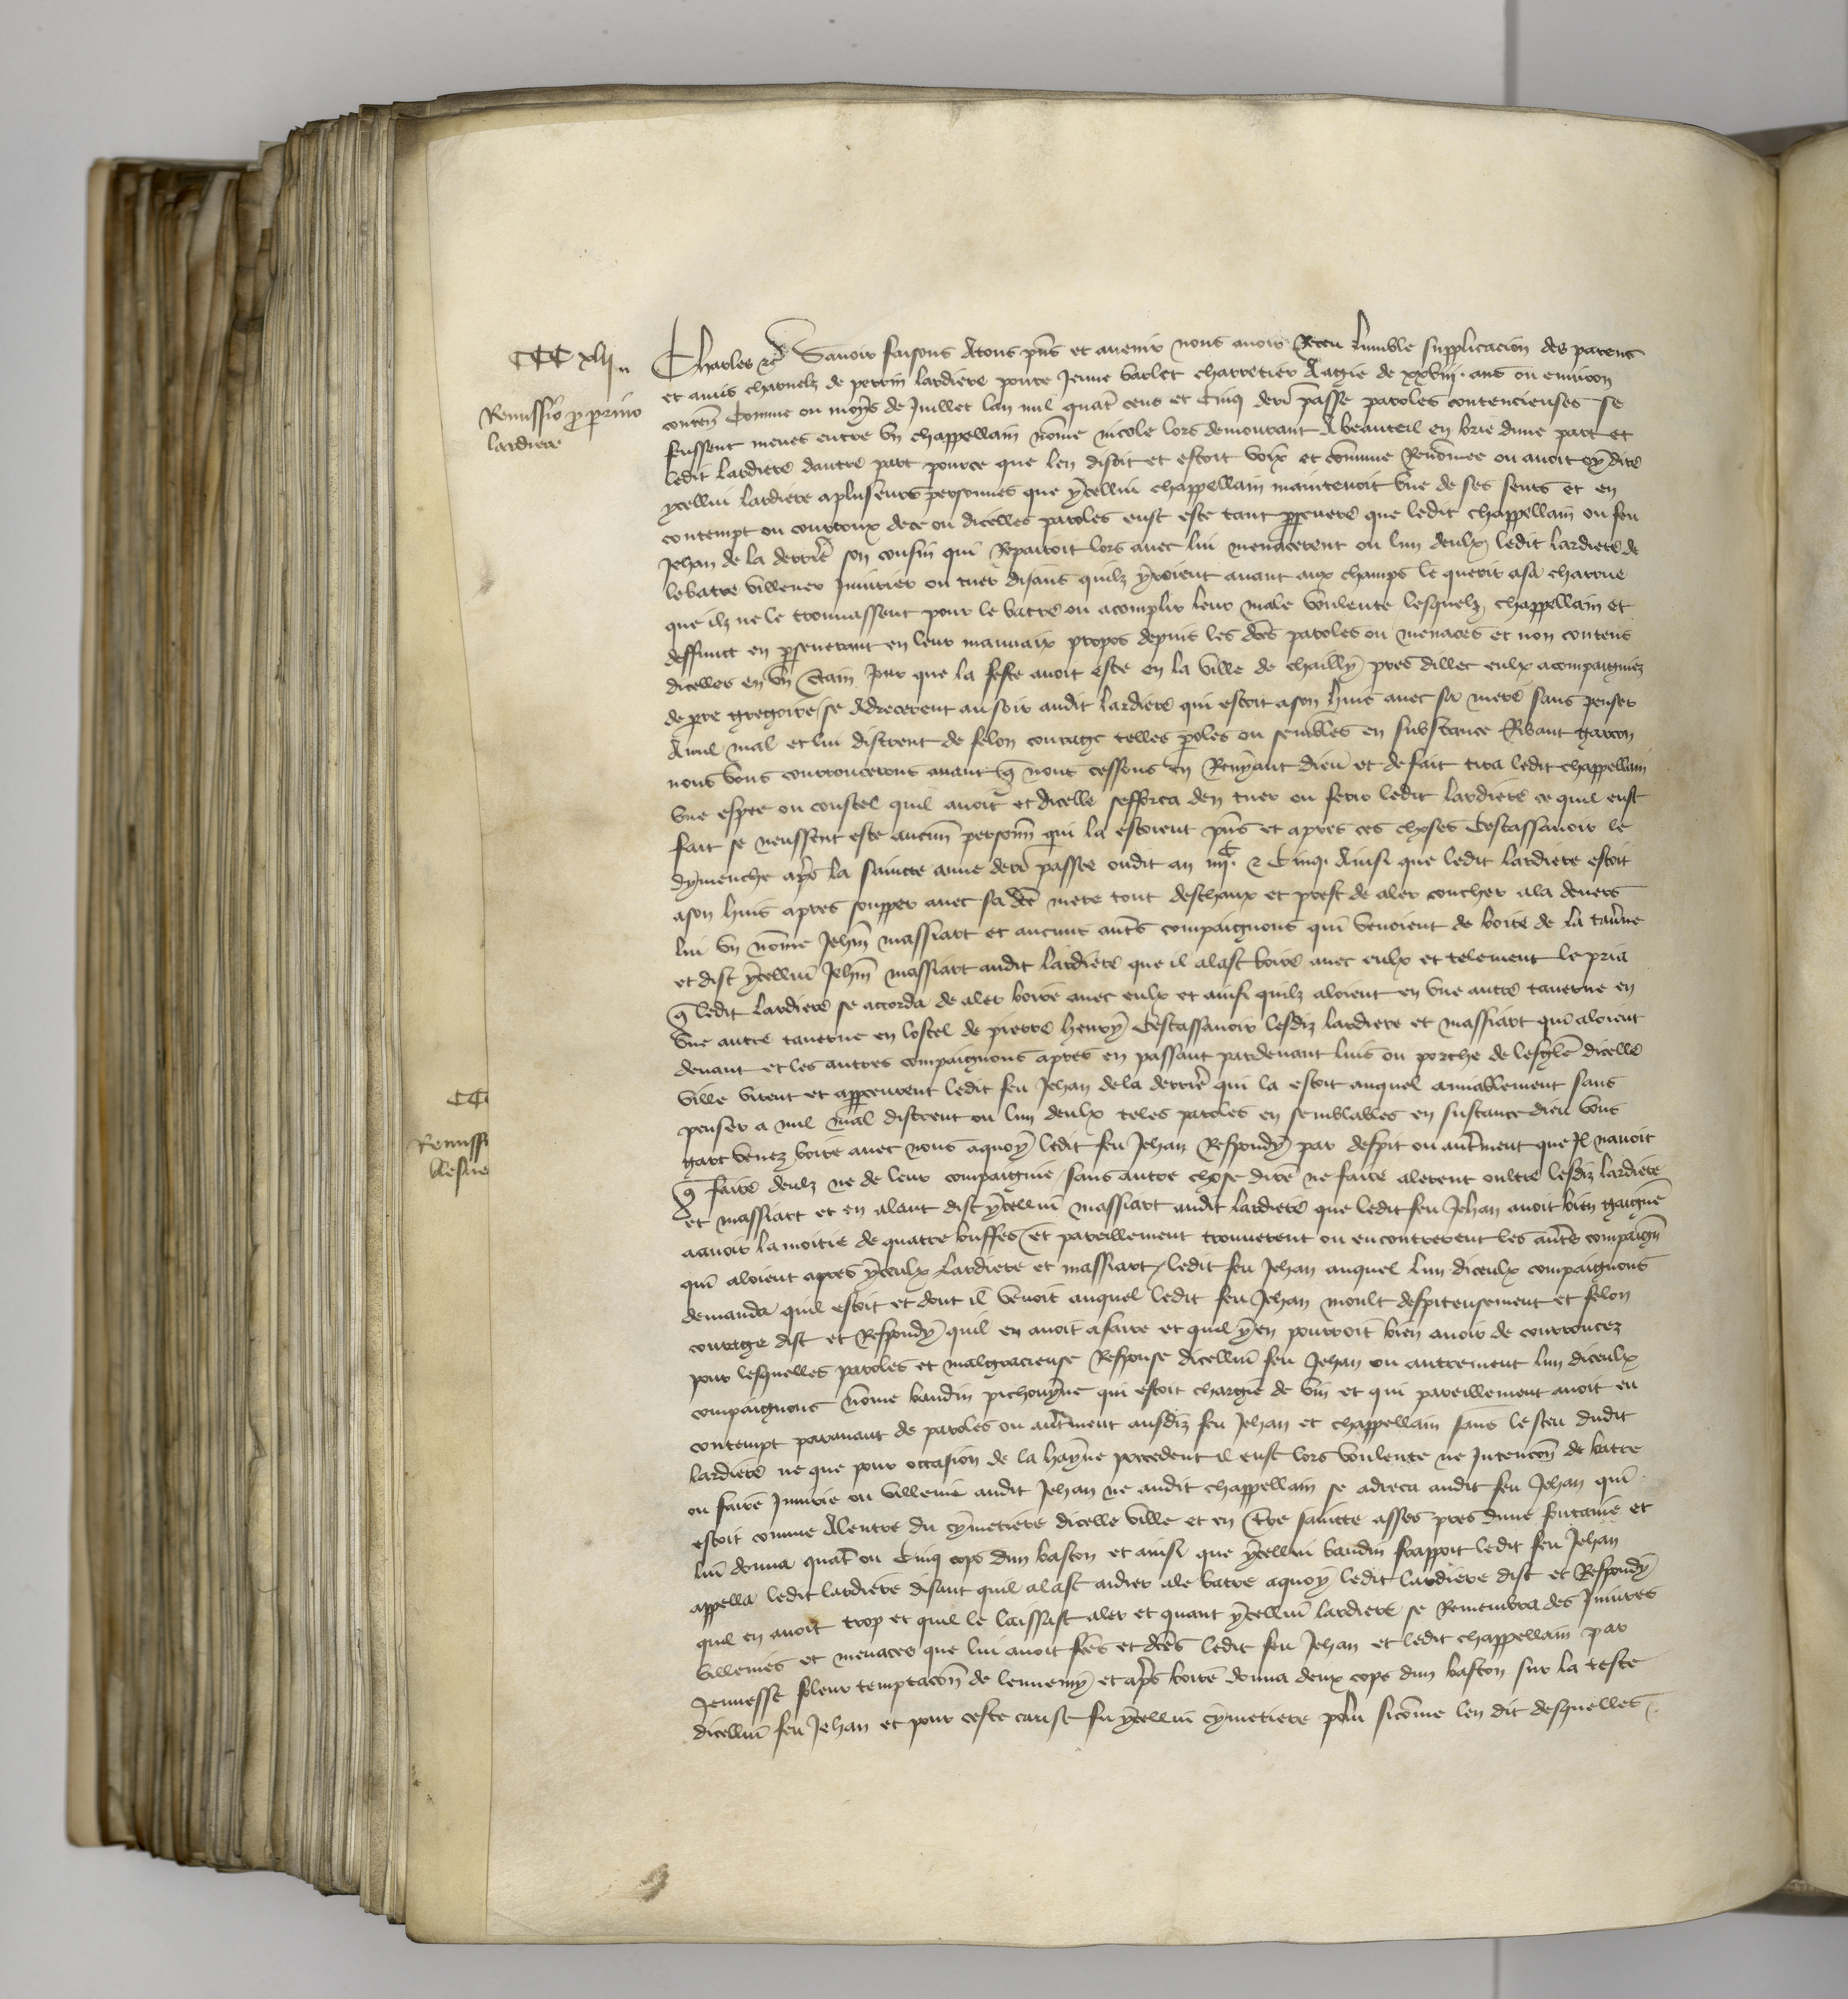 CCC xlij
Remissio p perrino
lardiere
Charles etc Sauoir faisons Atous pns et auenir nous auoir Receu lumble supplicacion des parens
et amis charnelz de perrin lardiere poure Jeune varlet charretier Aagie de xxviij. ans ou enuiron
conten Comme ou moys de Juillet lan mil quat cens et Cinq derr passe paroles contencieuses se
feussent meues entre vn chappellain nome nicole lors demourant A beauteil en brie dune part et
ledit lardiere dautre part pource que len disoit et estoit voix et comune Renomee ou auoit oy dire
ycellui lardiere aplusieurs personnes que ycellui chappellain maintenoit vne de ses seurs et en
contempt ou courroux dece ou dicelles paroles eust este tant pseuere que ledit chappellain ou feu
Jehan de la derrie son cousin qui Repairoit lors auec lui menacerent ou lun deulx ledit lardiere de
lebatre villener Iniurier ou tuer disans quilz yroient auant aux champs le querir asa charrue
que ilz ne le trouuassent pour le batre ou acomplir leur male voulente lesquelz chappellain et
deffunct en pseuerant en leur mauuaix propos depuis les des paroles ou menaces et non contens
dicelles en vn ctain jour que la feste auoit este en la ville de chailly pres dillec eulx acompaigniez
de pre gregoire se Adrecerent au soir audit lardiere qui estoit ason huis auec sa mere sans penser
Anul mal et lui distrent de felon courage telles poles ou sembles en substance Ribaut garcon
nous vous courroucerons auant q nous cessons en Renyant dieu et de fait tira ledit chappellain
vne espee ou coustel quil auoit et dicelle sefforca den tuer ou ferir ledit lardiere ce quil eust
fait se neussent este aucun personn qui la estoient pns et apres ces choses Cestassauoir le
dymenche aps la saincte anne derr passee oudit an iiijc. et Cinq. Ainsi que ledit lardiere estoit
ason huis apres soupper auec sa dce mere tout deschaux et prest de aler coucher ala deuers
lui vn nome Jehn massiart et aucuns auts compaignons qui venoient de boire de la tauerne
et dist ycellui Jehn massiart audit lardiere que il alast boire auec eulx et telement le pria
q ledit lardiere se accorda de aler boire auec eulx et ainsi quilz aloient en vne autre tauerne en
vne autre tauerne en lostel de pierre henry Cestassauoir lesdiz lardiere et massiart qui aloient
deuant et les autres compaignons apres en passant pardeuant luis ou porche de lesgle dicelle
ville virent et apperceurent ledit feu Jehan dela derrie qui la estoit auquel amiablement sans
penser a nul mal distrent ou lun deulx teles paroles en semblables en sustance dieu vous
gart venez boire auec nous aquoy ledit feu Jehan Respondy par despit ou autment que Il nauoit
q faire deulz ne de leur compaignie sans autre chose dire ne faire alerent oultre lesdiz lardiere
et massiart et en alant dist ycellui massiart audit lardiere que ledit feu Jehan auoit bien gaignie
aauoir la moitie de quatre buffes et pareillement trouuerent ou encontrerent les auts compaign
qui aloient apres yceulx Lardiere et massiart ledit feu Jehan auquel lun diceulx compaignons
demanda quil estoit et dont il venoit auquel ledit feu Jehan moult despiteusement et felon
courage dist et Respondy quil en auoit afaire et quil y en pourroit bien auoir de courroucez
pour lesquelles paroles et malgracieuse Response dicellui feu Jehan ou autrement lun diceulx
compaignons nome baudin pichouyne qui estoit chargie de vin et qui pareillement auoit eu
contempt parauant de paroles ou autment ausdiz feu Jehan et chappellain sans le sceu dudit
lardiere ne que pour occasion de la hayne precedent il eust lors voulente ne Intencon de batre
ou faire Iniurie ou villenie audit Jehan ne audit chappellain se adreca audit feu Jehan qui
estoit comme Alentre du cymetiere dicelle ville et en tre saincte asses pres dune fontaine et
lui donna quat ou Cinq cops dun baston et ainsi que ycellui baudin frappoit ledit feu Jehan
appella ledit lardiere disant quil alast aidier ale batre aquoy ledit lardiere dist et Respondy
quil en auoit trop et quil le laissast aler et quant ycellui lardiere se Remembra des Iniures
villenies et menaces que lui auoit fces et dces ledit feu Jehan et ledit chappellain par
Jeunesse foleur temptacon de lennemy et aps boire donna deux cops dun baston sur la teste
dicellui feu Jehan et pour ceste cause fu ycellui cymetiere polu sicome len dit desquelles
CCC
Remissi
blesne